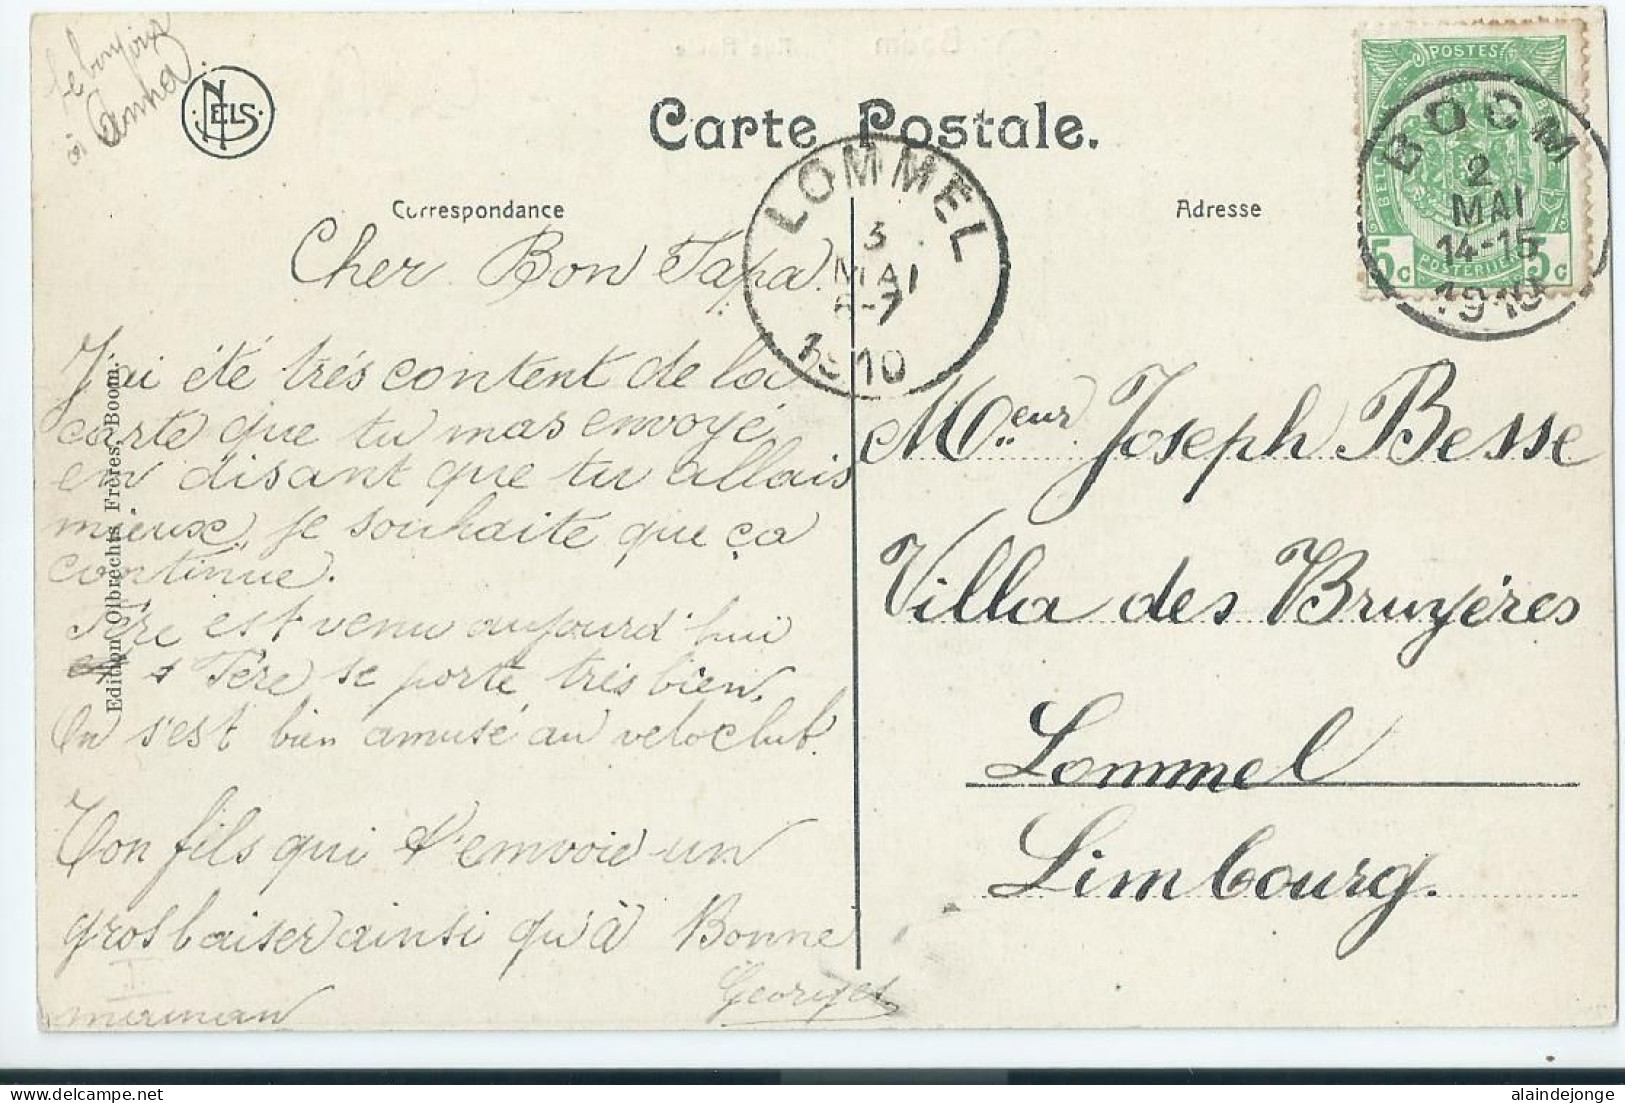 Le bonjour
à Anna.
NELS
Carte Postale.
Correspondance
Adresse
POSTES
POSTERIJEN
5c
5c
BOOM
2
MAI
14-15
1910
LOMMEL
3
MAI
6-7
1910
Cher Bon Papa.
J'ai été très content de la
carte que tu mas envoyé
en disant que tu allais
mieux, je souhaite que ça
continue.
Père est venu aujourd'hui
Père se porte très bien,
On s'est bien amusé au veloclub.
Ton fils qui t'envoie un
gros baiser ainsi qu'à Bonne
maman
Georges
Edition Olbrechts Frères, Boom.
Meur Joseph Besse
Villa des Bruyéres
Lommel
Limbourg.
alaindejonge